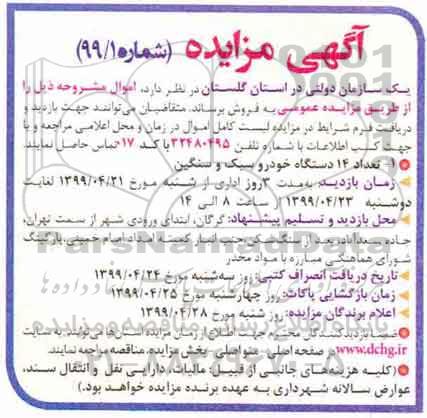 آگهی مزایده (شماره ۹۹/۱)
یک سازمان دولتی در استان گلستان در نظر دارد، اموال مشروحه ذیل را
از طریق مزایده عمومی به فروش برساند. متقاضیان می‌توانند جهت بازدید و
دریافت فرم شرایط در مزایده لیست کامل اموال در زمان و محل اعلامی مراجعه و یا
جهت کسب اطلاعات با شماره تلفن ۳۲۴۸۰۴۹۵ با کد ۰۱۷ تماس حاصل نمایند.
۱- تعداد ۱۴ دستگاه خودرو سبک و سنگین
زمان بازدید: به‌مدت ۳ روز اداری از شنبه مورخ ۱۳۹۹/۰۴/۲۱ لغایت
دوشنبه ۱۳۹۹/۰۴/۲۳ از ساعت ۸ الی ۱۴
محل بازدید و تسلیم پیشنهاد: گرگان، ابتدای ورودی شهر از سمت تهران،
جاده بعد از سنگ انبار کمیته امداد امام خمینی، پارکینگ
شورای هماهنگی مبارزه با مواد مخدر
تاریخ دریافت انصراف کتبی: روز سه‌شنبه مورخ ۱۳۹۹/۰۴/۲۴
زمان بازگشایی پاکات: روز چهارشنبه مورخ ۱۳۹۹/۰۴/۲۵
اعلام برندگان مزایده: روز شنبه مورخ ۱۳۹۹/۰۴/۲۸
ضمنا بازدیدکنندگان محترم جهت اطلاع از زمان مزایده استان‌ها می‌توانند به سایت
www.dchg.ir در صفحه اصلی، منو اصلی، بخش مزایده، مناقصه مراجعه نمایند.
(کلیه هزینه‌های جانبی از قبیل: مالیات، دارایی نقل و انتقال سند،
عوارض سالانه شهرداری به عهده برنده مزایده خواهد بود.)
ParsNamadData
پایگاه اطلاع رسانی مناقصه و مزایده